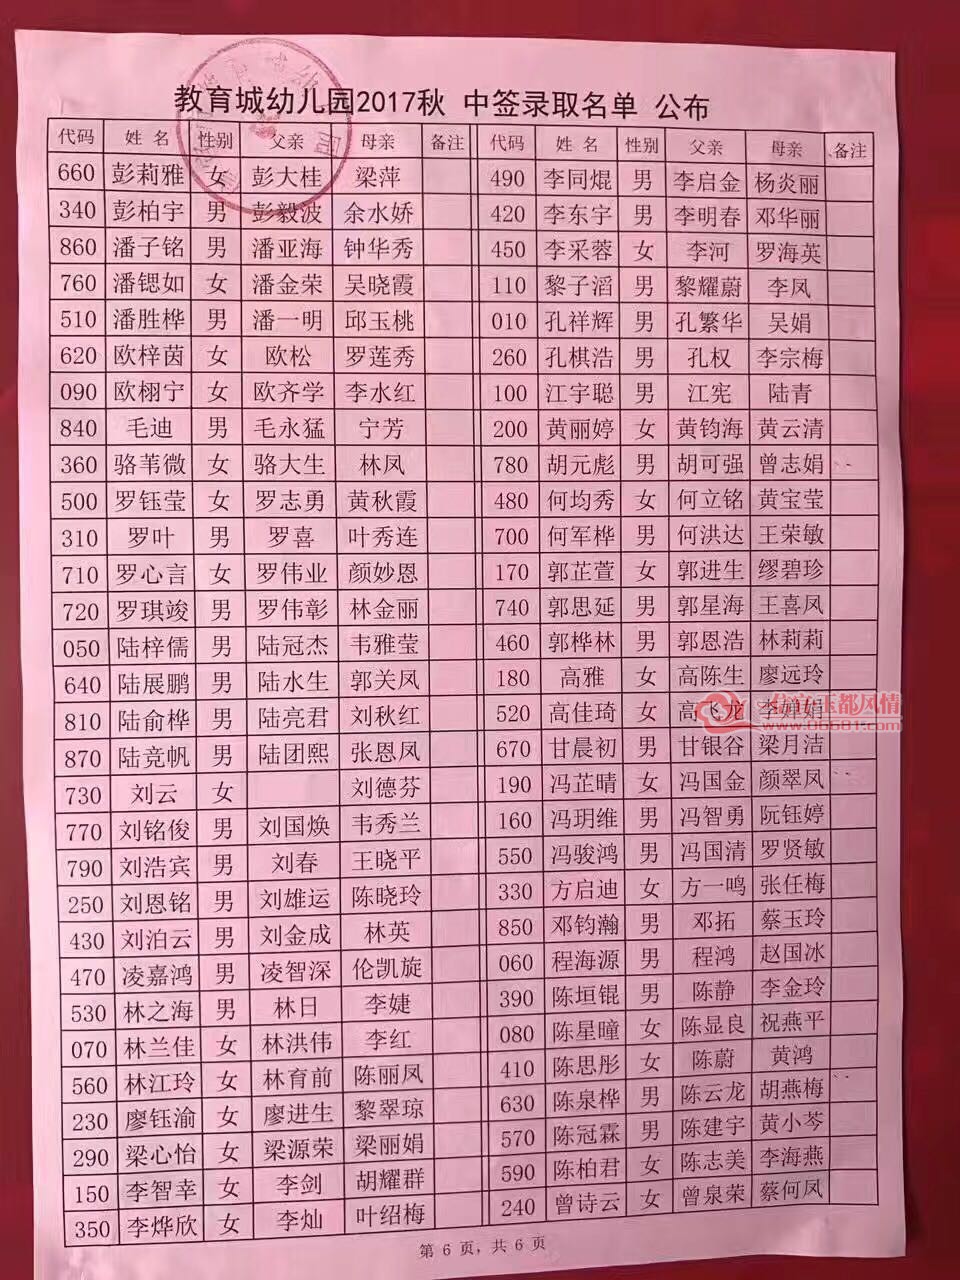 教育城幼儿园2017秋 中签录取名单 公布
代码 姓名 性别 父亲 母亲 备注 代码 姓名 性别 父亲 母亲 备注
660 彭莉雅 女 彭大桂 梁萍 490 李同焜 男 李启金 杨炎丽
340 彭柏宇 男 彭毅波 余水娇 420 李东宇 男 李明春 邓华丽
860 潘子铭 男 潘亚海 钟华秀 450 李采蓉 女 李河 罗海英
760 潘锶如 女 潘金荣 吴晓霞 110 黎子滔 男 黎耀蔚 李凤
510 潘胜桦 男 潘一明 邱玉桃 010 孔祥辉 男 孔繁华 吴娟
620 欧梓茵 女 欧松 罗莲秀 260 孔棋浩 男 孔权 李宗梅
090 欧栩宁 女 欧齐学 李水红 100 江宇聪 男 江宪 陆青
840 毛迪 男 毛永猛 宁芳 200 黄丽婷 女 黄钧海 黄云清
360 骆苇微 女 骆大生 林凤 780 胡元彪 男 胡可强 曾志娟
500 罗钰莹 女 罗志勇 黄秋霞 480 何均秀 女 何立铭 黄宝莹
310 罗叶 男 罗喜 叶秀连 700 何军桦 男 何洪达 王荣敏
710 罗心言 女 罗伟业 颜妙恩 170 郭芷萱 女 郭进生 缪碧珍
720 罗琪竣 男 罗伟彰 林金丽 740 郭思延 男 郭星海 王喜凤
050 陆梓儒 男 陆冠杰 韦雅莹 460 郭桦林 男 郭恩浩 林莉莉
640 陆展鹏 男 陆水生 郭关凤 180 高雅 女 高陈生 廖远玲
810 陆俞桦 男 陆亮君 刘秋红 520 高佳琦 女 高飞龙 李婵娟
870 陆竞帆 男 陆团熙 张恩凤 670 甘晨初 男 甘银谷 梁月洁
730 刘云 女 刘德芬 190 冯芷晴 女 冯国金 颜翠凤
770 刘铭俊 男 刘国焕 韦秀兰 160 冯玥维 男 冯智勇 阮钰婷
790 刘浩宾 男 刘春 王晓平 550 冯骏鸿 男 冯国清 罗贤敏
250 刘恩铭 男 刘雄运 陈晓玲 330 方启迪 女 方一鸣 张任梅
430 刘泊云 男 刘金成 林英 850 邓钧瀚 男 邓拓 蔡玉玲
470 凌嘉鸿 男 凌智深 伦凯旋 060 程海源 男 程鸿 赵国冰
530 林之海 男 林日 李婕 390 陈垣锟 男 陈静 李金玲
070 林兰佳 女 林洪伟 李红 080 陈星曈 女 陈显良 祝燕平
560 林江玲 女 林育前 陈丽凤 410 陈思彤 女 陈蔚 黄鸿
230 廖钰渝 女 廖进生 黎翠琼 630 陈泉桦 男 陈云龙 胡燕梅
290 梁心怡 女 梁源荣 梁丽娟 570 陈冠霖 男 陈建宇 黄小芩
150 李智幸 女 李剑 胡耀群 590 陈柏君 女 陈志美 李海燕
350 李烨欣 女 李灿 叶绍梅 240 曾诗云 女 曾泉荣 蔡何凤
第 6 页, 共 6 页
信宜玉都风情
www.06681.com